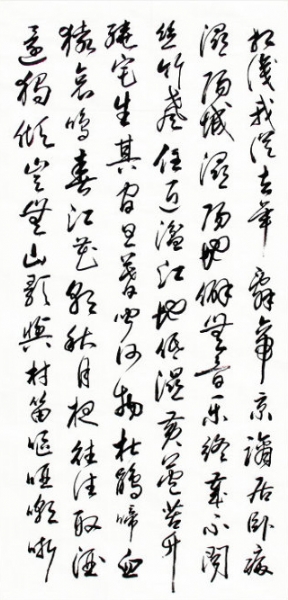 相識我從去年辭帝京謫居臥病
潯陽城潯陽地僻無音樂終歲不聞
絲竹聲住近湓江地低濕黃蘆苦竹
繞宅生其間旦暮聞何物杜鵑啼血
猿哀鳴春江花朝秋月夜往往取酒
還獨傾豈無山歌與村笛嘔啞嘲哳